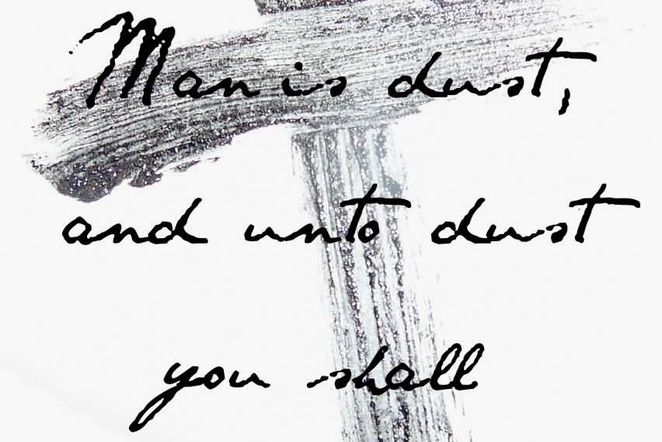 Man is dust,
and unto dust
you shall